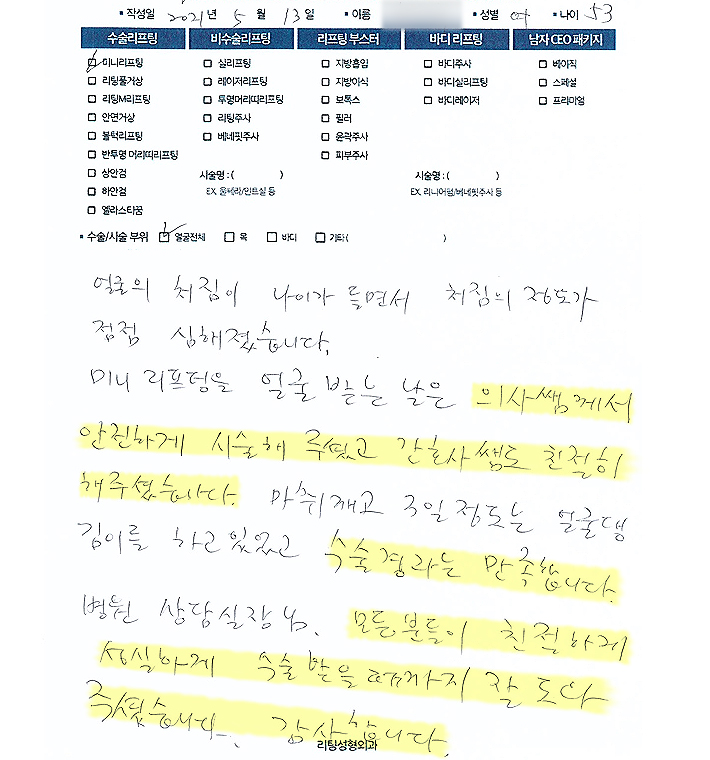 • 작성일 2021 년 5 월 13 일 • 이름 • 성별 여 • 나이 53
수술리프팅 비수술리프팅 리프팅 부스터 바디 리프팅 남자 CEO 패키지
미니리프팅 실리프팅 지방흡입 바디주사 베이직
리팅풀거상 레이저리프팅 지방이식 바디실리프팅 스페셜
리팅M리프팅 투명머리띠리프팅 보톡스 바디레이저 프리미엄
안면거상 리팅주사 필러
볼턱리프팅 베네핏주사 윤곽주사
반투명 머리띠리프팅 피부주사
상안검 시술명 : ( ) 시술명 : ( )
하안검 EX. 울쎄라/인트실 등 EX. 리니어펌/베네핏주사 등
엘라스티꿈
• 수술/시술 부위 얼굴전체 목 바디 기타 ( )
얼굴의 처짐이 나이가 들면서 처짐의 정도가
점점 심해졌습니다.
미니 리프팅을 얼굴 받는 날은 의사쌤께서
안전하게 시술해 주셨고 간호사쌤도 친절히
해주셨습니다. 마취깨고 3일정도는 얼굴땡
김이를 하고있었고 수술결과는 만족합니다.
병원 상담실장님. 모든분들이 친절하게
성실하게 수술 받을때까지 잘 도와
주셨습니다. 감사합니다.
리팅성형외과